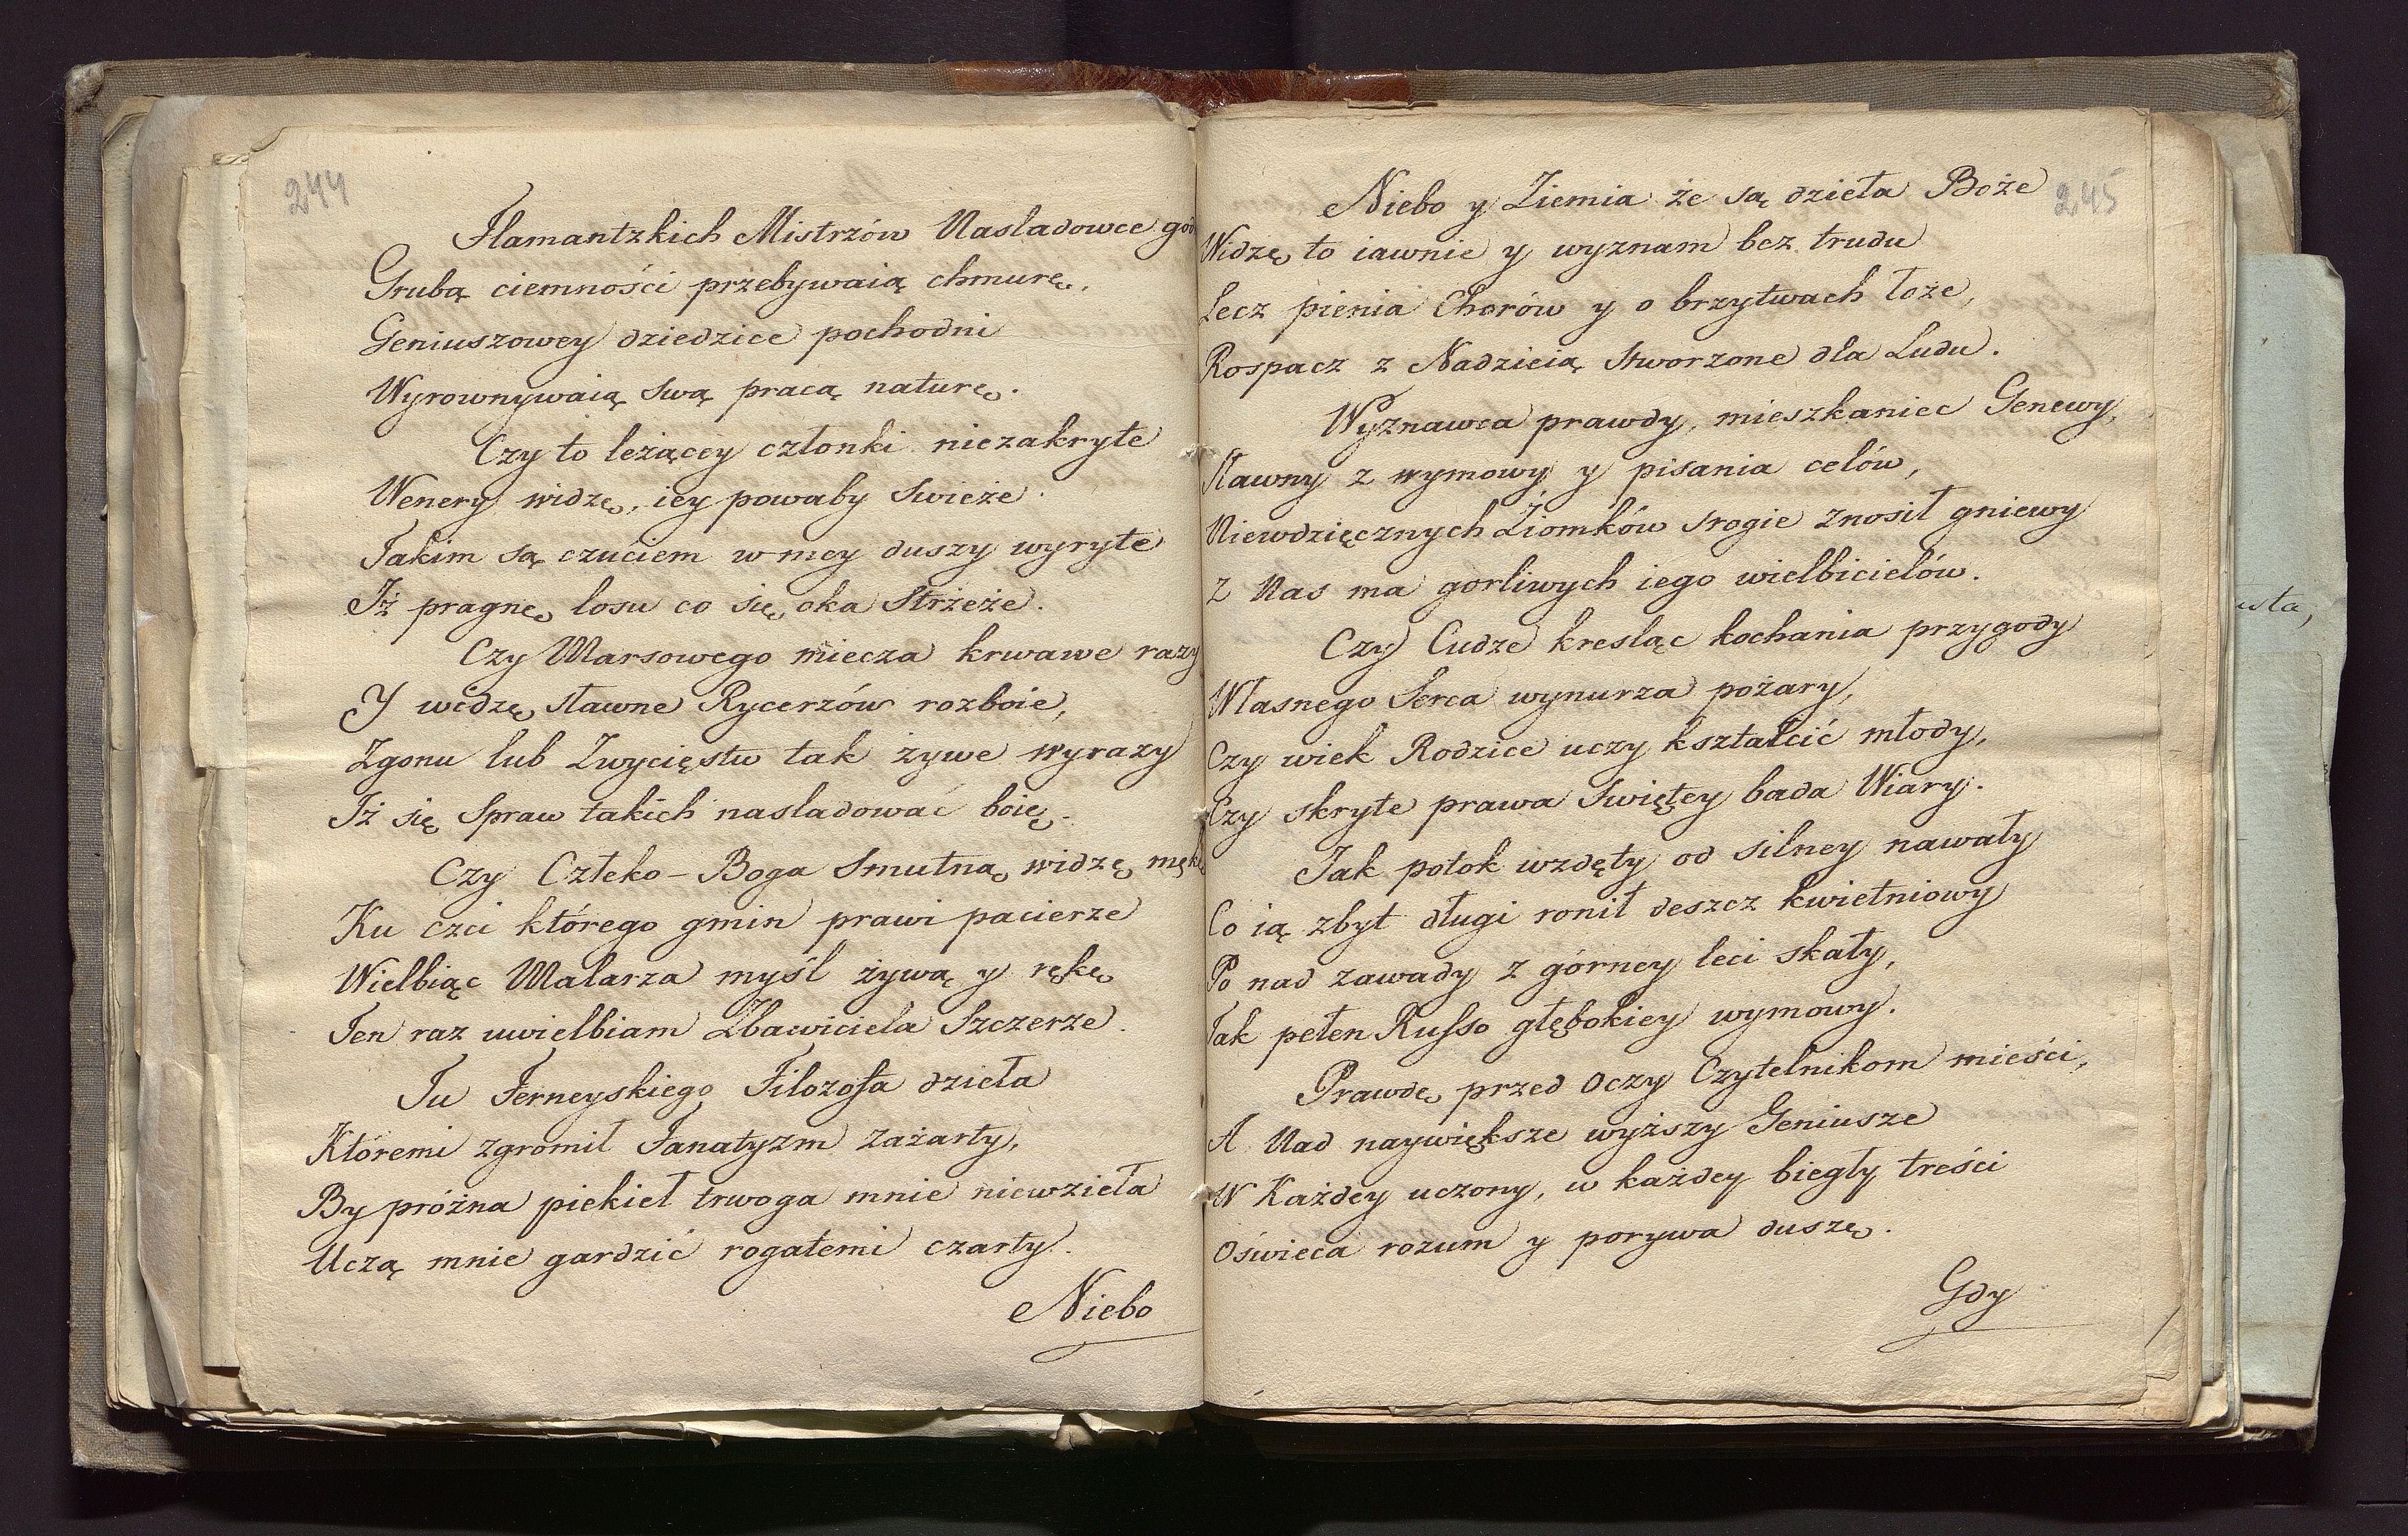 244
Flamantzkich Mistrzów Nasladowce god
Grubą ciemności przebywaią chmurę,
Geniuszowey dziedzice pochodni
Wyrownywaią swą pracą naturę.
Czy to leżącey członki niezakryte
Wenery widzę, iey powaby swieże.
Takim są czuciem w mey duszy wyryte
Iż pragnę losu co się oka strzeże.
Czy Marsowego miecza krwawe razy
Y widzę sławne Rycerzów rozboie,
Zgonu lub Zwycięstw tak żywe wyrazy
Iż się Spraw takich nasladować boię.
Czy Człeko-Boga Smutną widzę mękę
Ku czci którego gmin prawi pacierze
Wielbiąc Malarza myśl żywą y rękę
Ten raz uwielbiam Zbawiciela Szczerze.
Tu Ferneyskiego Filozofa dzieła
Któremi zgromił Fanatyzm zażarty,
By próżna piekieł trwoga mnie niewzieła
Uczą mnie gardzić rogatemi czarty.
Niebo
245
Niebo y Ziemia że są dzieła Boże
Widzę to iawnie y wyznam bez trudu
Lecz pienia Chorów y o brzytwach łoże,
Rospacz z Nadzieią stworzone dla Ludu.
Wyznawca prawdy, mieszkaniec Genewy,
Sławny z wymowy y pisania celów,
Niewdzięcznych Ziomków srogie znosił gniewy
Z Nas ma gorliwych iego wielbicielów.
Czy Cudze kresląc kochania przygody
Własnego Serca wynurza pożary,
Czy wiek Rodzice uczy kształcić młody,
Czy skryte prawa Swiętey bada Wiary.
Jak potok wzdęty od silney nawały
Co ią zbyt długi ronił deszcz kwietniowy
Po nad zawady z górney leci skały,
Tak pełen Russo głębokiey wymowy.
Prawdę przed oczy Czytelnikom mieści,
A Nad naywiększe wyższy Geniusze
W Każdey uczony, w każdey biegły treści
Oświeca rozum y porywa duszę.
Gdy